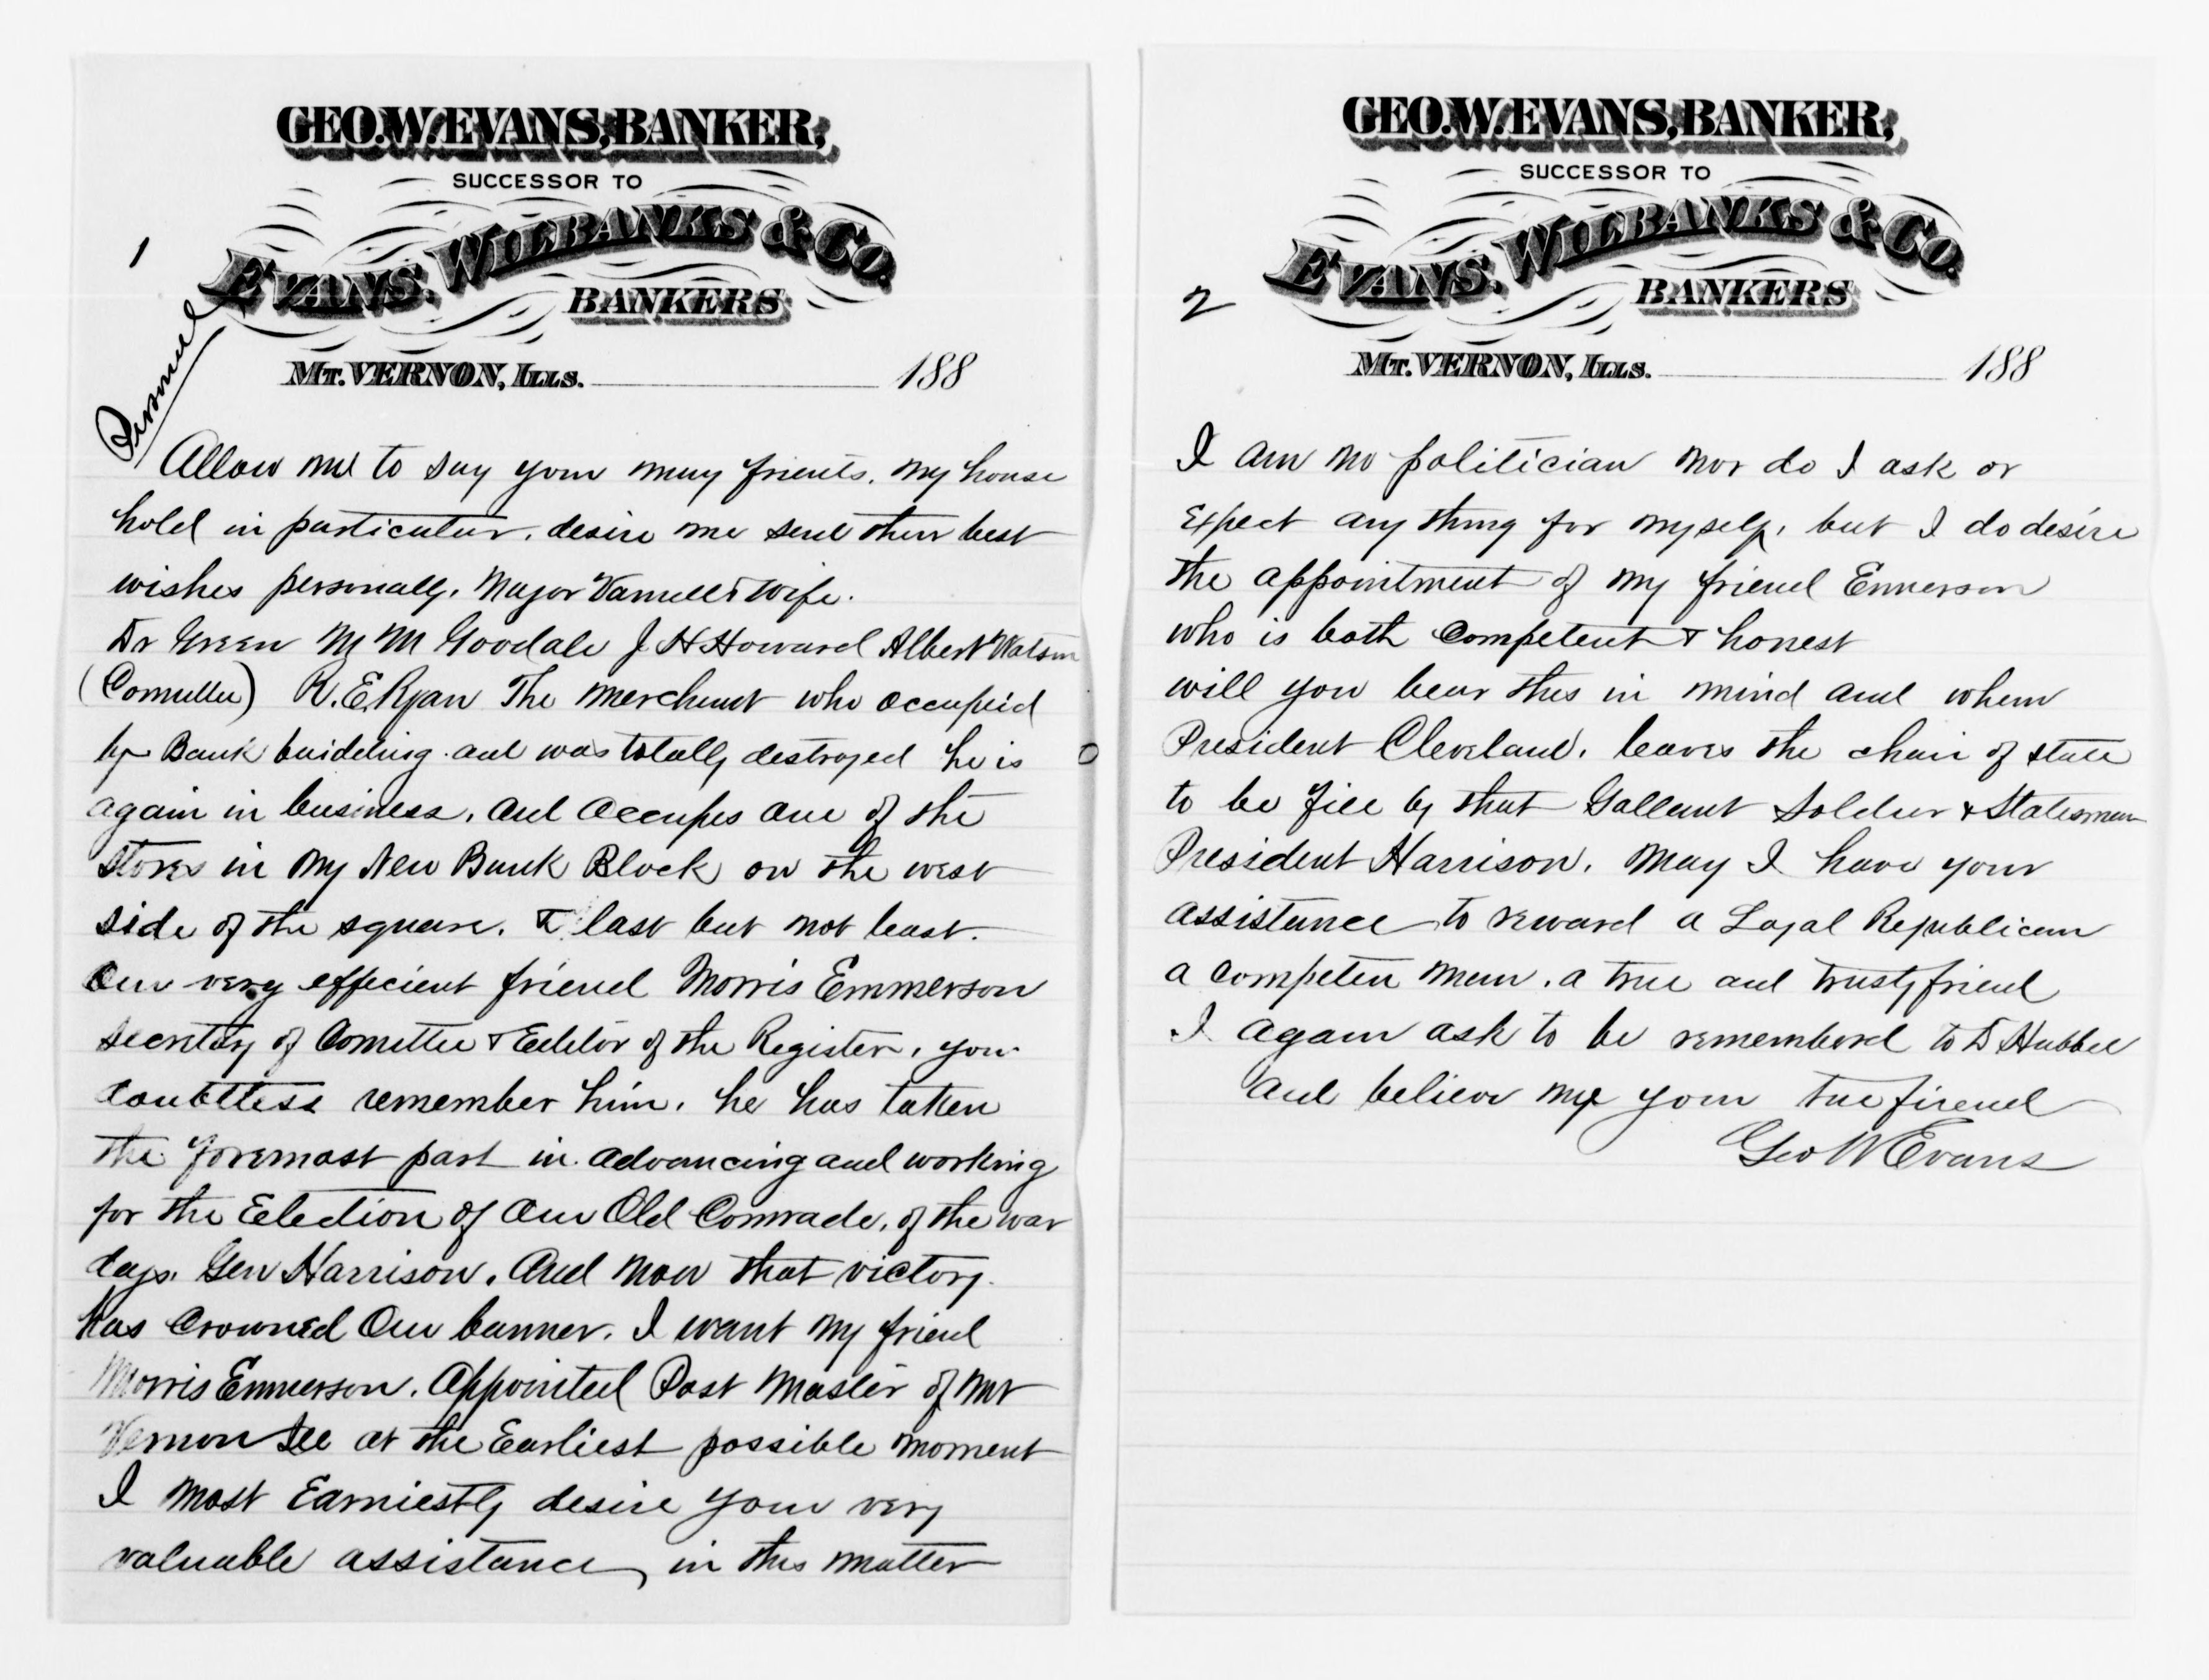 GEO. W. EVANS, BANKER,
SUCCESSOR TO
EVANS, WILBANKS & CO.
BANKERS
MT. VERNON, ILLS. 188
1
Personal
Allow me to say your many friends, my house
hold in particular, desire me send their best
wishes personally, Major & wife.
Dr Green M M Goodale J H Howard Albert Watson
(Comittee) R. E. Ryan The merchant who occupied
by Bank buidding and was totally destroyed he is
again in business, and occupes one of the
stores in my New Bank Block on the west
side of the square. & last but not least.
Our very efficient friend Morris Emmerson
secretary of Comittee & Editor of the Register, you
doubtless remember him, he has taken
the foremost part in advancing and working
for the Election of Our Old Comrade, of the war
days. Gen Harrison. And now that victory
has crowned Our banner. I want my friend
Morris Emmerson. appointed Post Master of Mt
Vernon Ill at the Earliest possible moment
I most Earniestly desire your very
valuable assistance, in this matter
GEO. W. EVANS, BANKER,
SUCCESSOR TO
EVANS, WILBANKS & CO.
BANKERS
MT. VERNON, ILLS. 188
2
I am no politician nor do I ask or
Expect any thing for myself, but I do desire
the appointment of my friend Emmerson
who is both competent & honest
will you bear this in mind and when
President Cleveland, leaves the chair of state
to be fill by that Gallant Soldier & Statesman
President Harrison. May I have your
assistance to reward a Loyal Republican
a competen man, a true and trusty friend
I again ask to be rememberd to D Hubbell
and believe me your true friend
Geo W Evans